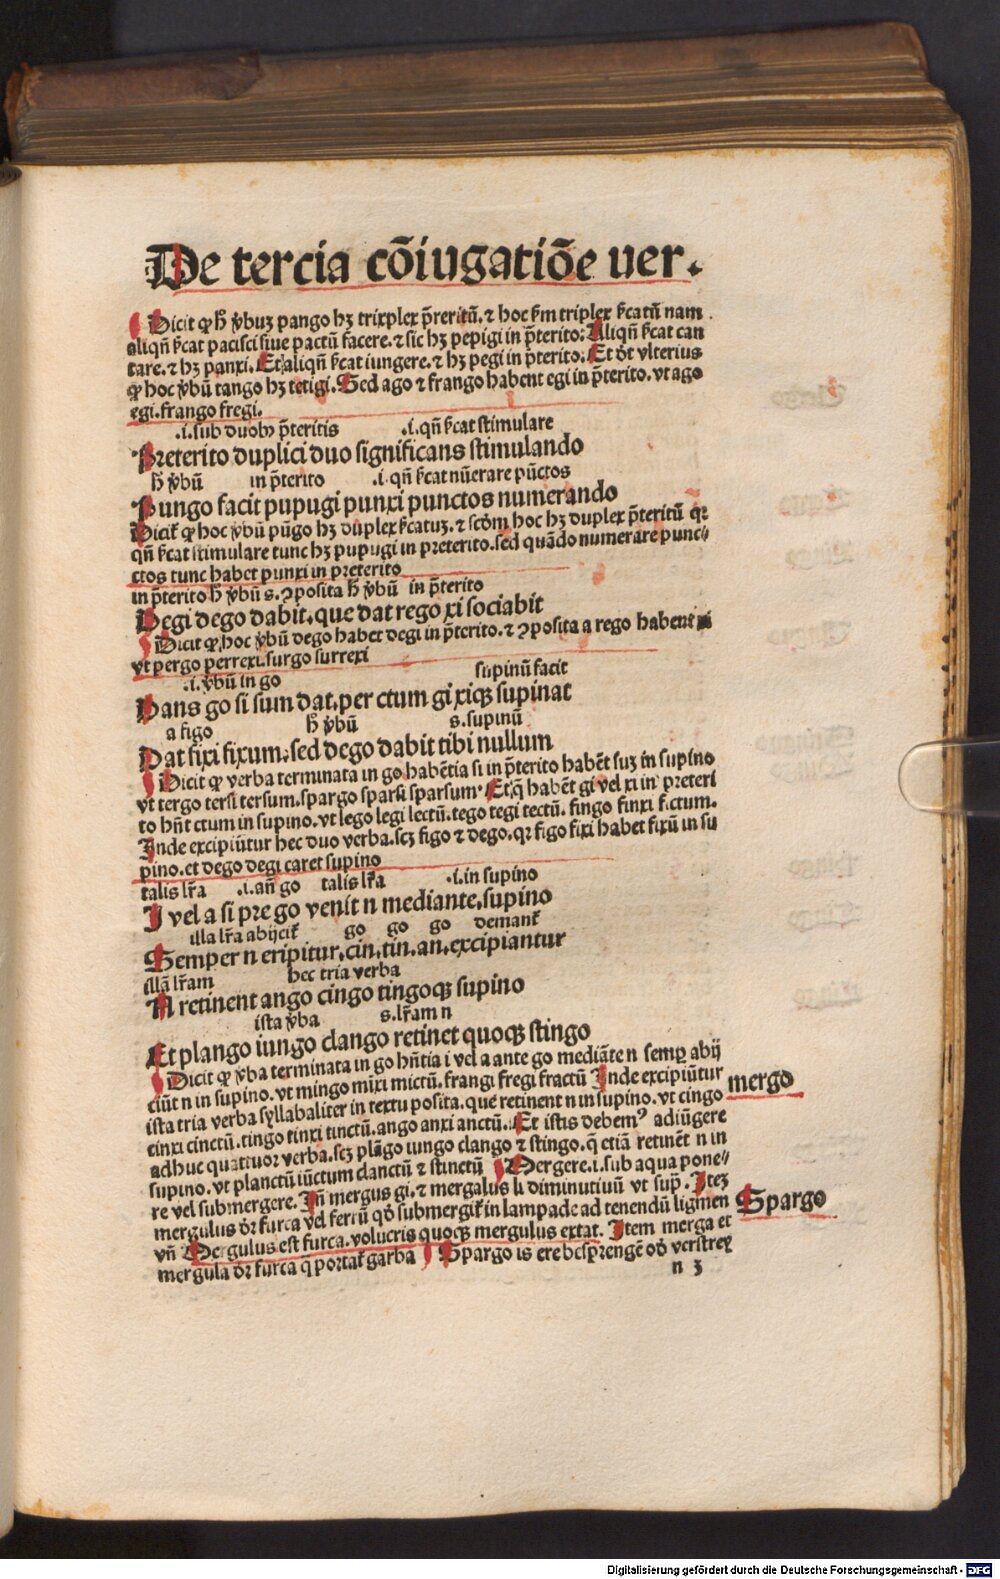 De tercia cōiugatiōe uer.
Dicit ꝙ h̄ v̄buʒ pango hʒ trixplex p̄reritū. ⁊ hoc ẜm triplex ẜcatū nam
aliqn̄ ẜcat pacisci siue pactū facere. ⁊ sic hʒ pepigi in p̄terito: Aliqn̄ ẜcat can
tare. ⁊ hʒ panxi. Et aliqn̄ ẜcat iungere. ⁊ hʒ pegi in p̄terito. Et d̄t vlterius
ꝙ hoc v̄bū tango hʒ tetigi. Sed ago ⁊ frango habent egi in p̄terito. vt ago
egi. frango fregi.
.i. sub duobꝰ p̄teritis .i. qn̄ ẜcat stimulare
Preterito duplici duo significans stimulando
h̄ v̄bū in p̄terito .i. qn̄ ẜcat nūerare pūctos
Pungo facit pupugi punxi punctos numerando
Dicit̄ ꝙ hoc v̄bū pūgo hʒ duplex ẜcatuʒ. ⁊ scd̄m hoc hʒ duplex p̄teritū qꝛ
qn̄ ẜcat stimulare tunc hʒ pupugi in preterito. sed quādo numerare punc⸗
ctos tunc habet punxi in preterito
in p̄terito h̄ v̄bū s. ꝯposita h̄ v̄bū in p̄terito
Degi dego dabit. que dat rego xi sociabit
Dicit ꝙ hoc v̄bū dego habet degi in p̄terito. ⁊ ꝯposita a rego habent xi
vt pergo perrexi. surgo surrexi
.i. v̄bū in go supinū facit
Dans go si sum dat. per ctum gi xiqꝫ supinat
a figo h̄ v̄bū s. supinū
Dat fixi fixum. sed dego dabit tibi nullum
Dicit ꝙ verba terminata in go habētia si in p̄terito habēt suʒ in supino
vt tergo tersi tersum. spargo sparsi sparsum. Et q̄ habēt gi vel xi in preteri
to hn̄t ctum in supino. vt lego legi lectū. tego tegi tectū. fingo finxi f.ctum.
Inde excipiūtur hec duo verba. scʒ figo ⁊ dego. qꝛ figo fixi habet fixū in su
pino. et dego degi caret supino
talis lr̄a .i. an̄ go talis lr̄a .i. in supino
I vel a si pre go venit n mediante. supino
illa lr̄a abijcit̄ go go go demant̄
Semper n eripitur. cin. tin. an. excipiantur
illā lr̄am hec tria verba
N retinent ango cingo tingoqꝫ supino
ista v̄ba s. lr̄am n
Et plango iungo clango retinet quoqꝫ stingo
Dicit ꝙ v̄ba terminata in go hn̄tia i vel a ante go mediāte n semꝑ abij
ciūt n in supino. vt mingo mixi mictū. frangi fregi fractū Inde excipiūtur
ista tria verba syllabaliter in textu posita. que retinent n in supino. vt cingo
cinxi cinctū. tingo tinxi tinctū. ango anxi anctū. Et istis debemꝰ adiūgere
adhuc quattuor verba. scʒ plāgo iungo clango ⁊ stingo. q̄ etiā retinēt n in
supino. vt planctū iūctum clanctū ⁊ stinctū Mergere .i. sub aqua pone⸗
re vel submergere. In̄ mergus gi. ⁊ mergalus li diminutiuū vt supͣ. Iteʒ
mergulus d̄r furca vel ferrū qd̄ submergit̄ in lampade ad tenendū ligmen
vn̄ Mergulus est furca. volucris quoqꝫ mergulus extat. Item merga et
mergula d̄r furca q̄ portat̄ garba Spargo is ere
mergo
Spargo
n 3
Digitalisierung gefördert durch die Deutsche Forschungsgemeinschaft - DFG